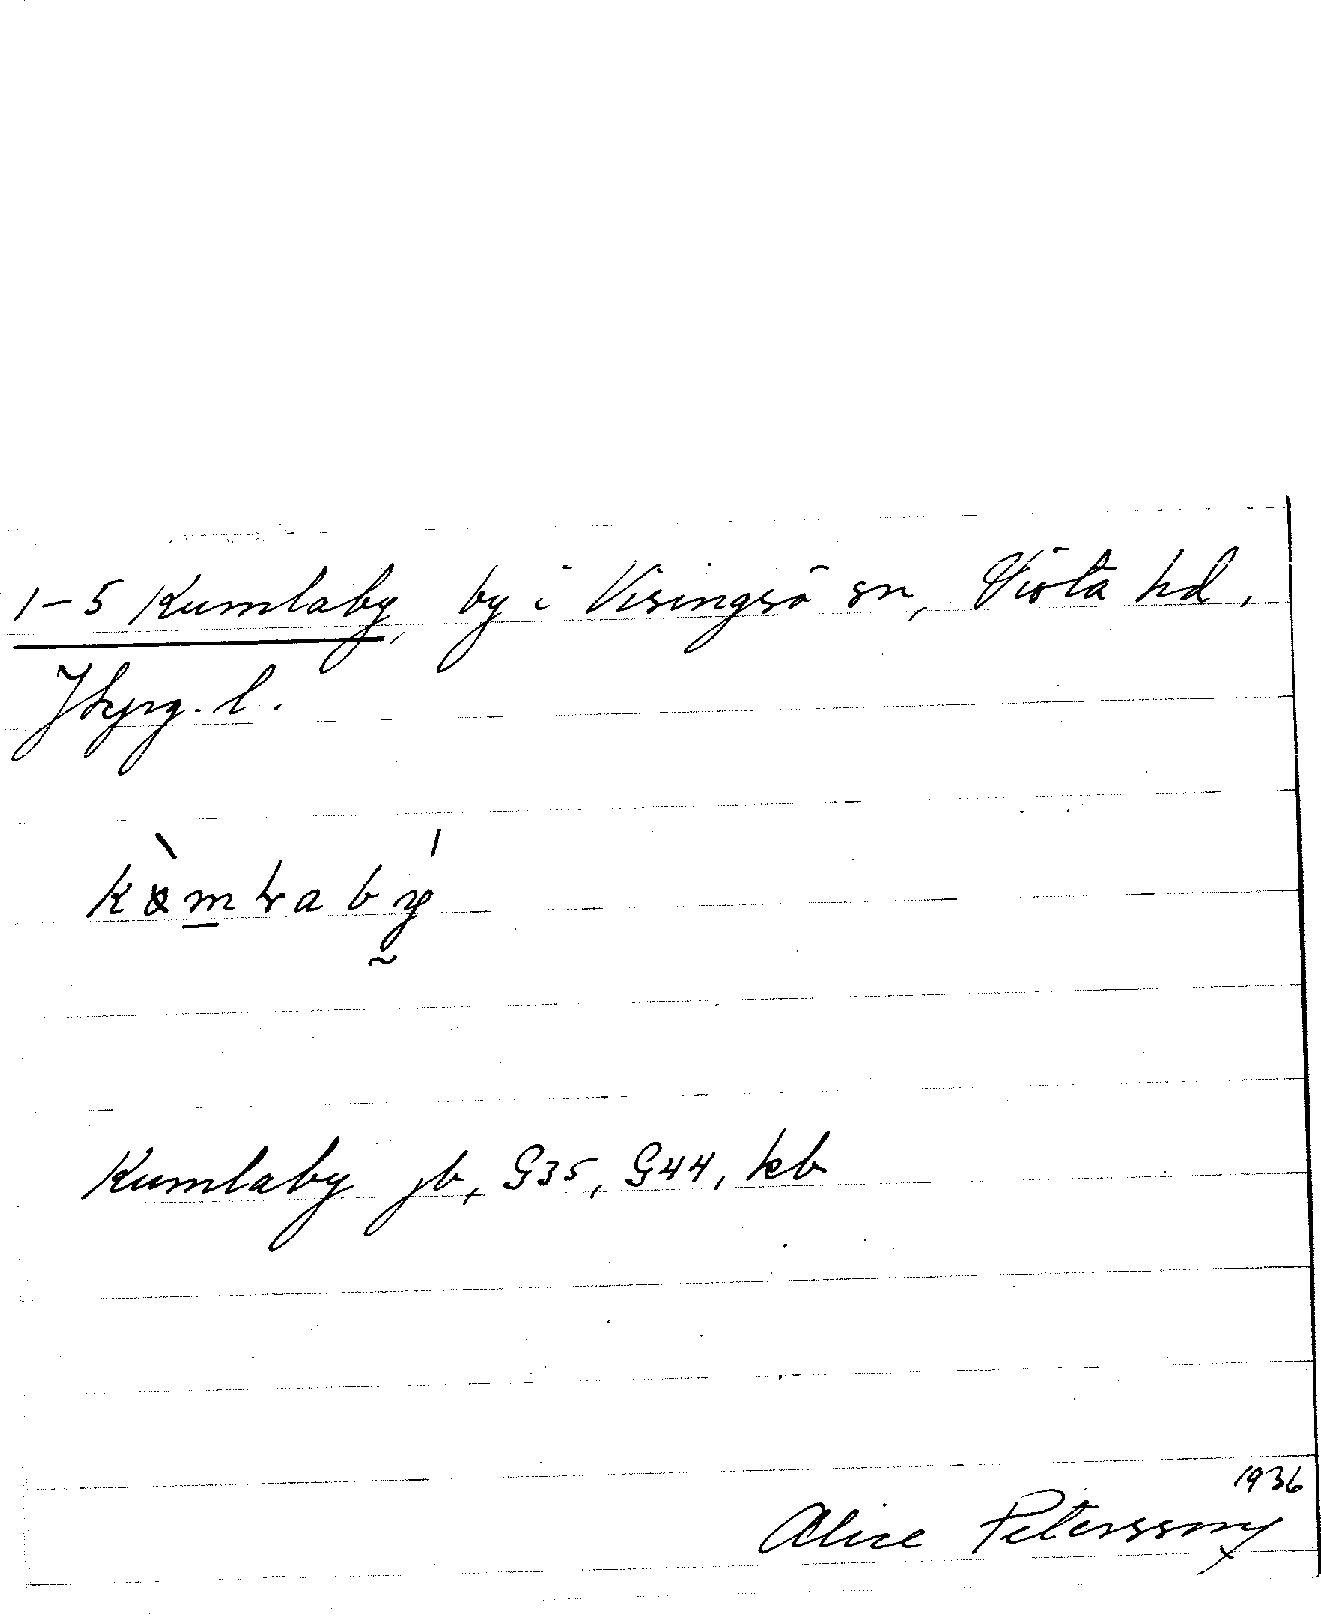 1-5 Kumlaby, by i Visingsö sn, Vista hd,
Jkpg. l.
Kumlaby jb, G35, G44, kb
1936
Alice Petersson